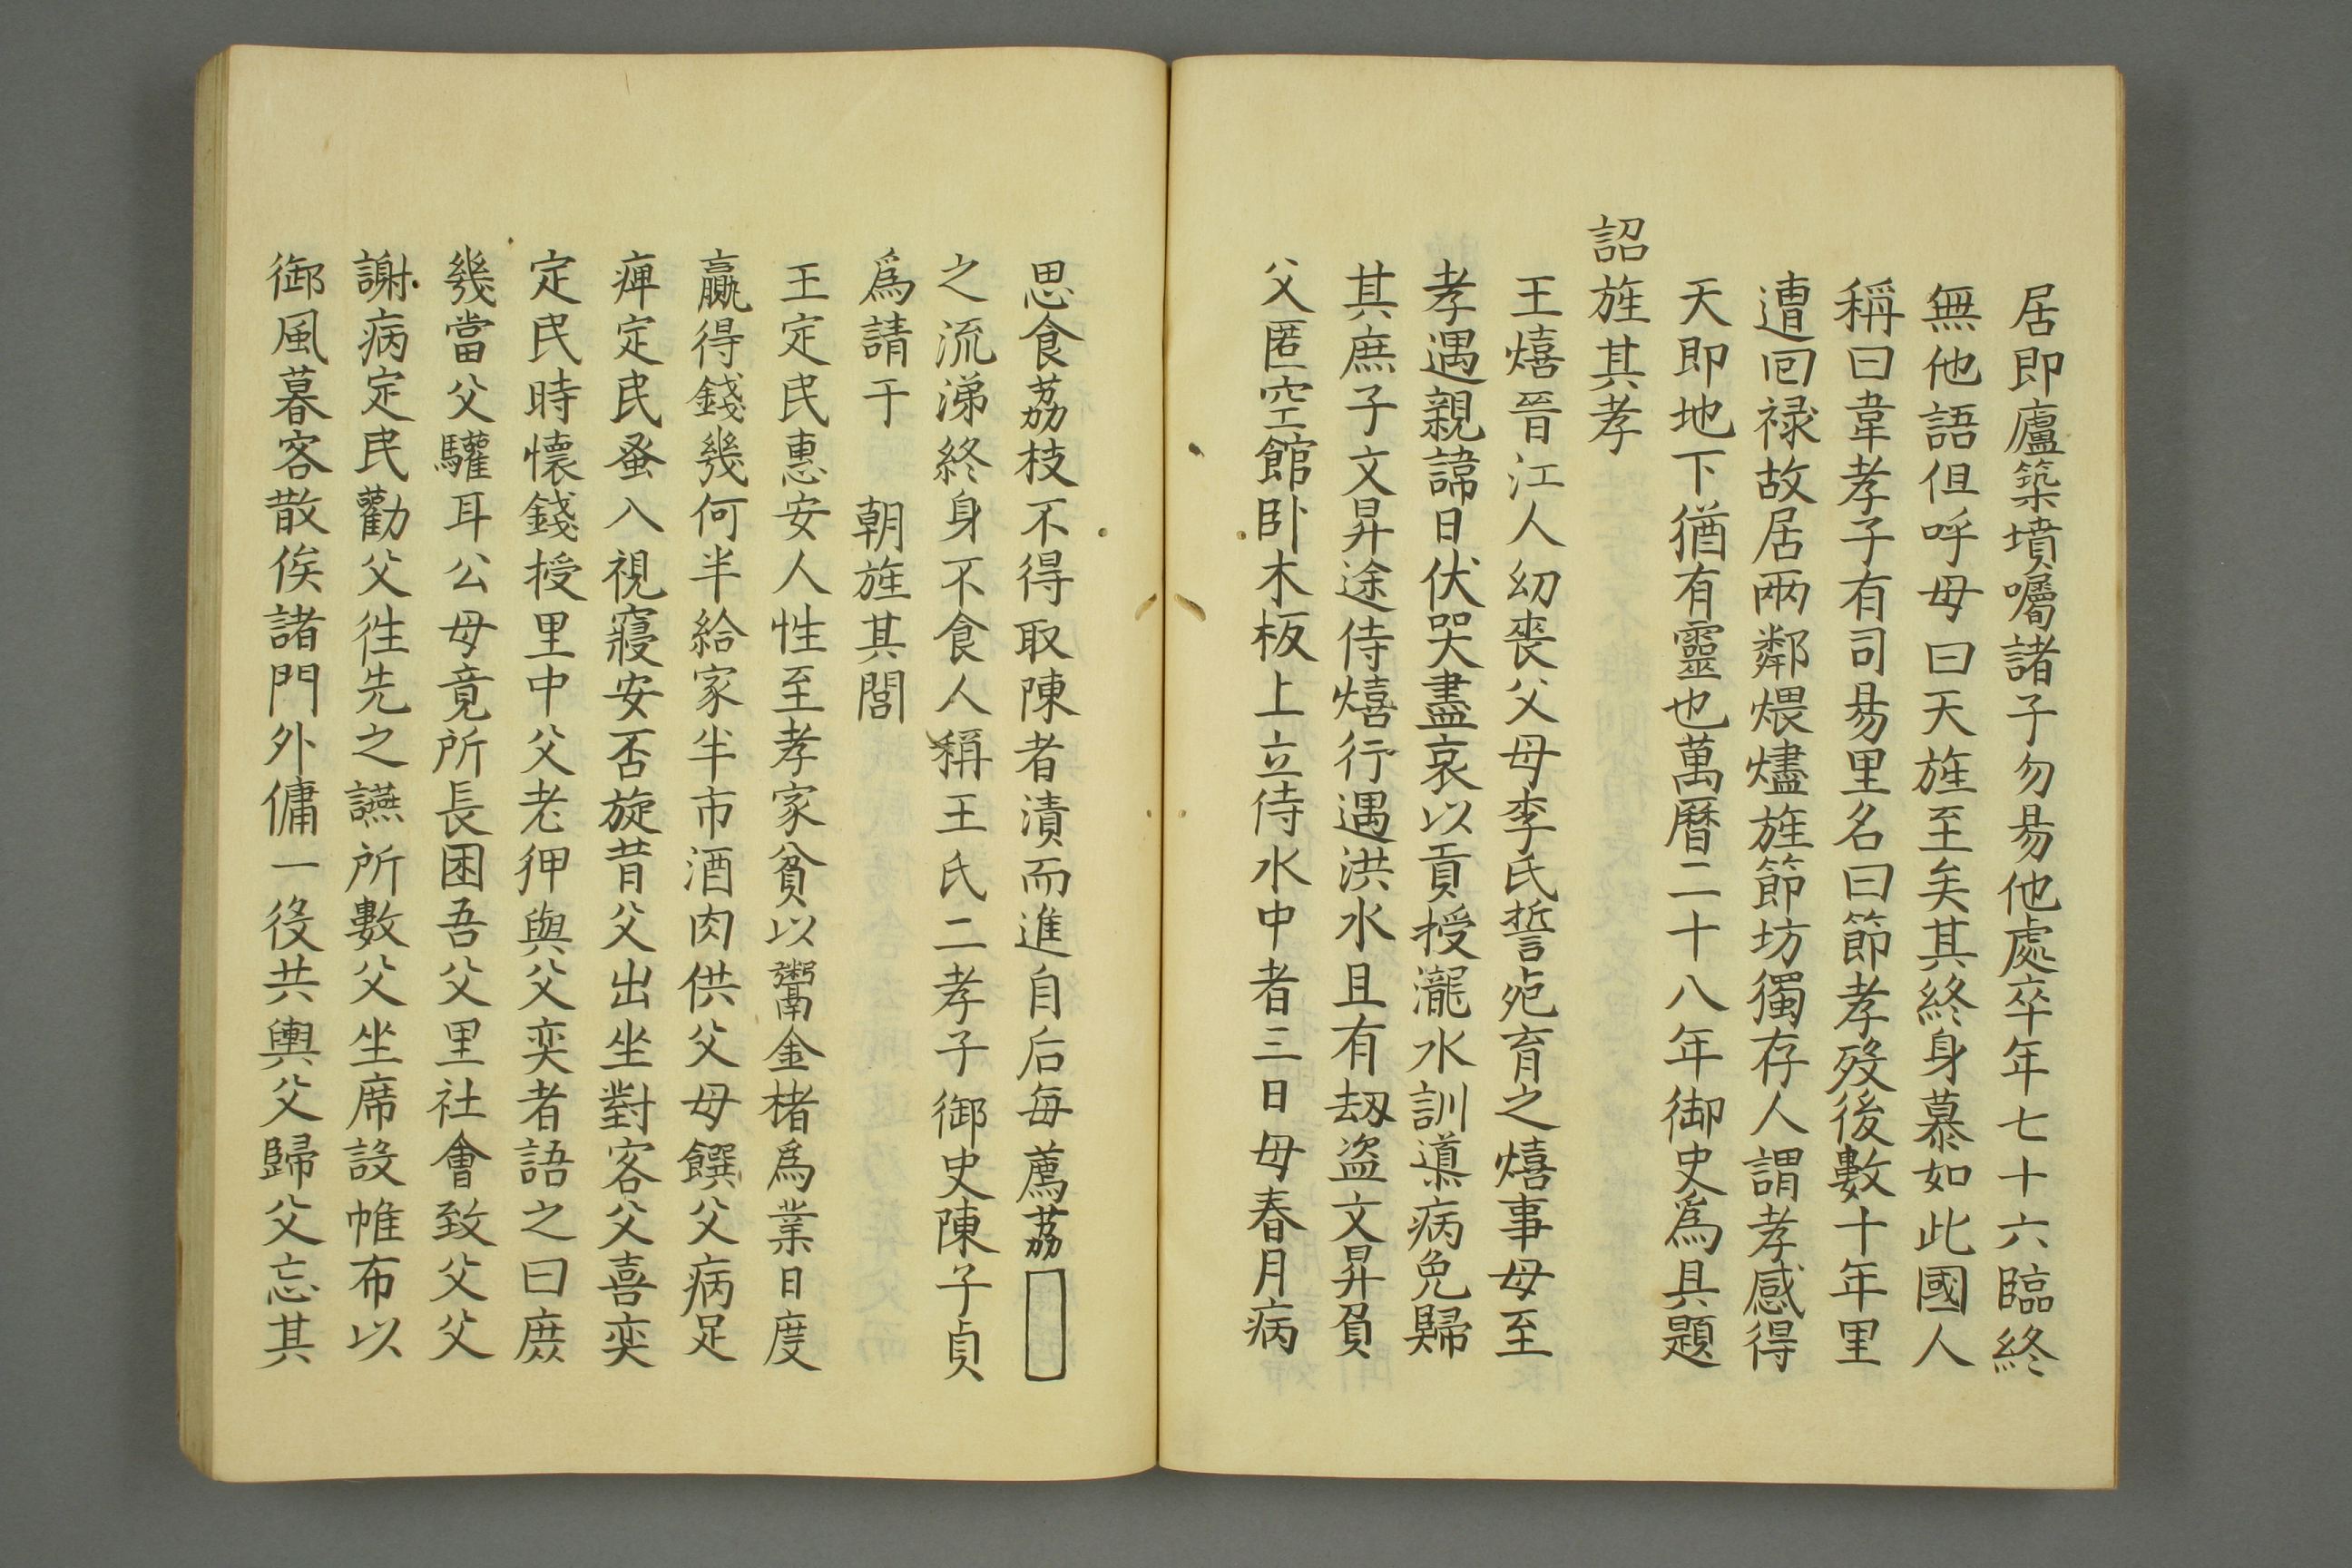 居即廬築墳囑諸子勿易他處卒年七十六臨終
無他語但呼母曰天旌至矣其終身慕如此國人
稱曰韋孝子有司易里名曰節孝歿後數十年里
遭回祿故居兩鄰煨燼旌節坊獨存人謂孝感得
天即地下猶有靈也萬曆二十八年御史爲具題
詔旌其孝
王熺晉江人幼丧父母李氏誓死育之熺事母至
孝遇親諱日伏哭盡哀以貢授瀧水訓導病免歸
其庶子文昇途侍熺行遇洪水且有刼盜文昇負
父匿空館卧木板上立侍水中者三日母春月病
思食荔枝不得取陳者漬而進自后每薦荔
之流涕終身不食人稱王氏二孝子御史陳子貞
爲請于 朝旌其閭
王定民惠安人性至孝家貧以鬻金楮爲業日度
贏得錢幾何半給家半市酒肉供父母饌父病足
痺定民蚤入視寢安否旋昔父出坐對客父喜奕
定民時懷錢授里中父老狎與父奕者語之曰庶
幾當父驩耳公毋竟所長困吾父里社會致父父
謝病定民勸父徃先之讌所數父坐席設帷布以
御風暮客散俟諸門外傭一役共輿父歸父忘其